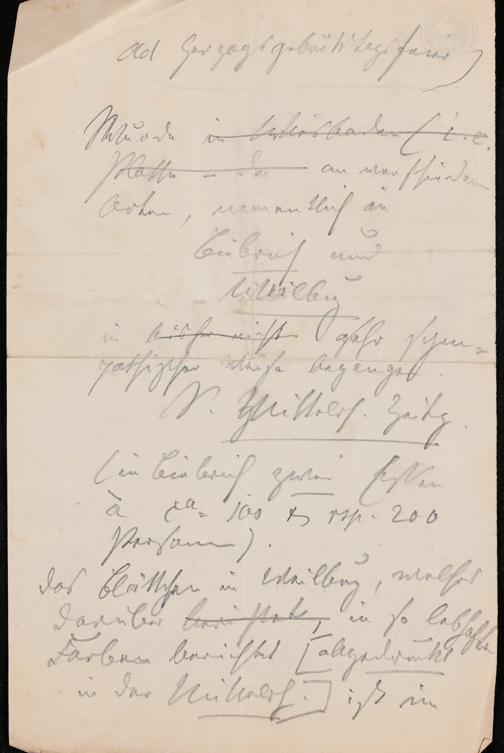 ad Herzogsgeburtstagsfeier
Wurde in Wiesbaden (i. e.
Platte – da an verschieden
Orten, namentlich in
Biebrich und
Weilbg
in nicht sehr sym-
pathischer Weise begangen.
S. Mittelrh. Zeitg.
(in Biebrich zwei Essen
à ca 100 & resp. 200
Personen).
das Blättchen in Weilbg, welches
darüber berichtet, in so lebhaften
Farben berichtet [abgedruckt
in der Mittelrh.] ist im